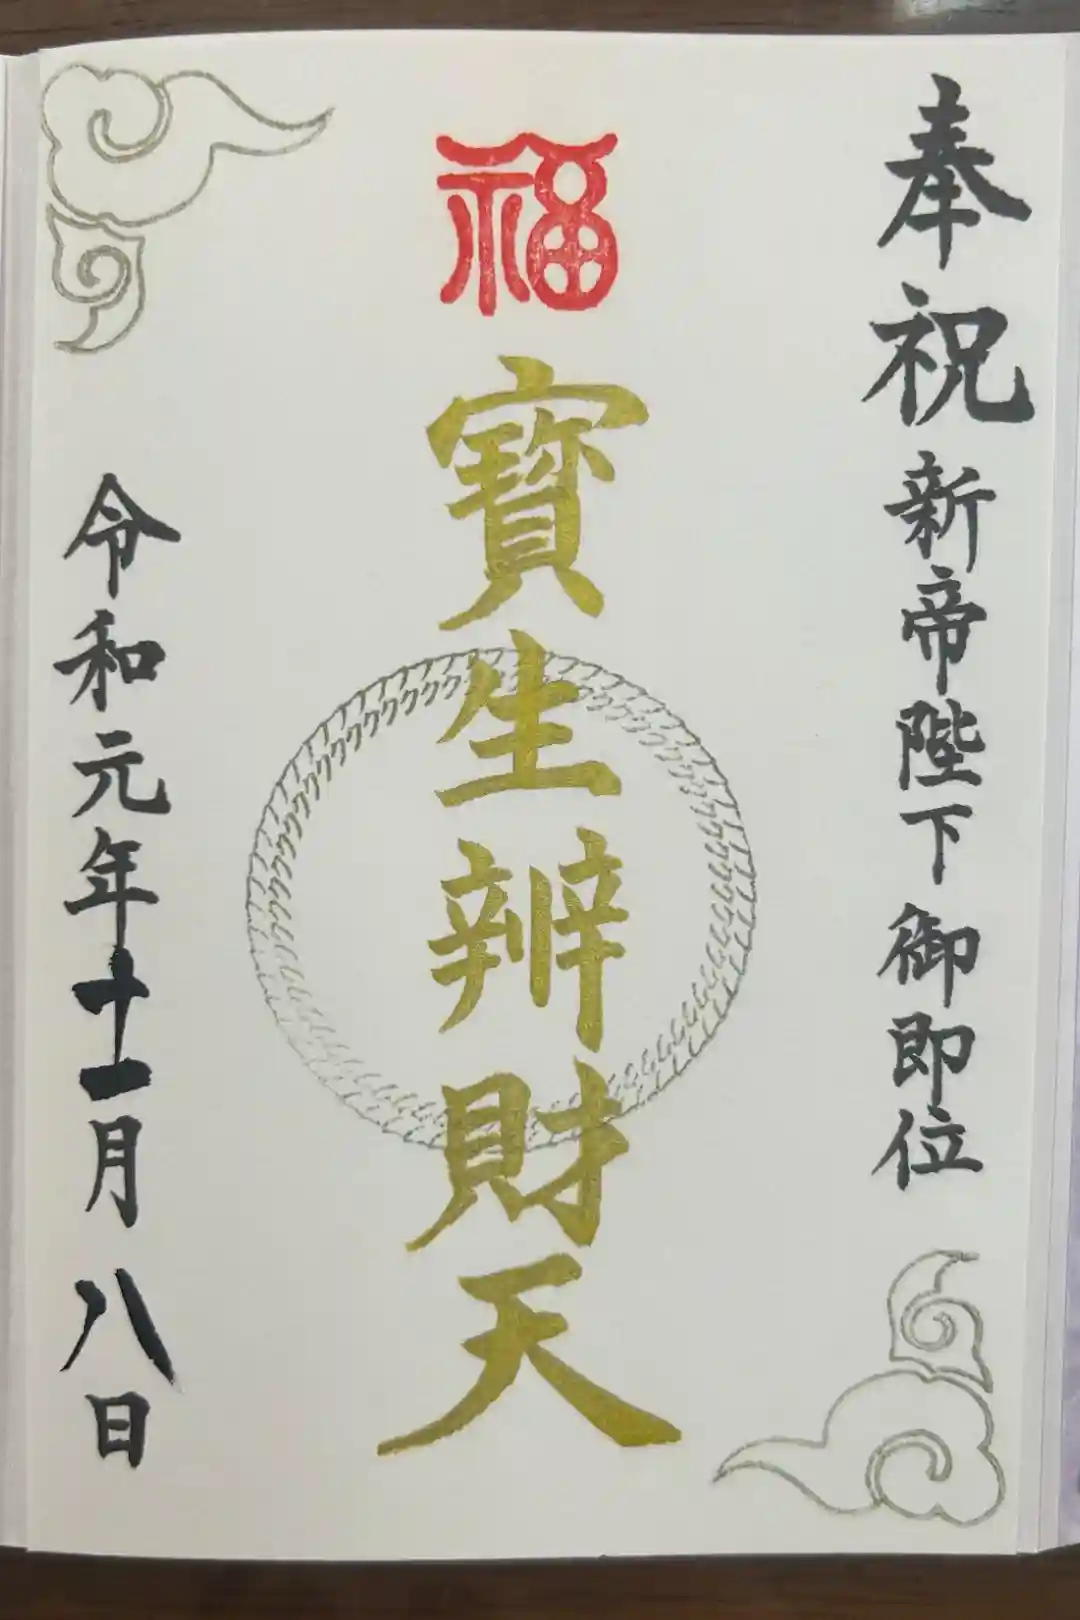 奉祝新帝陛下御即位
福
寶生辨財天
令和元年十一月八日